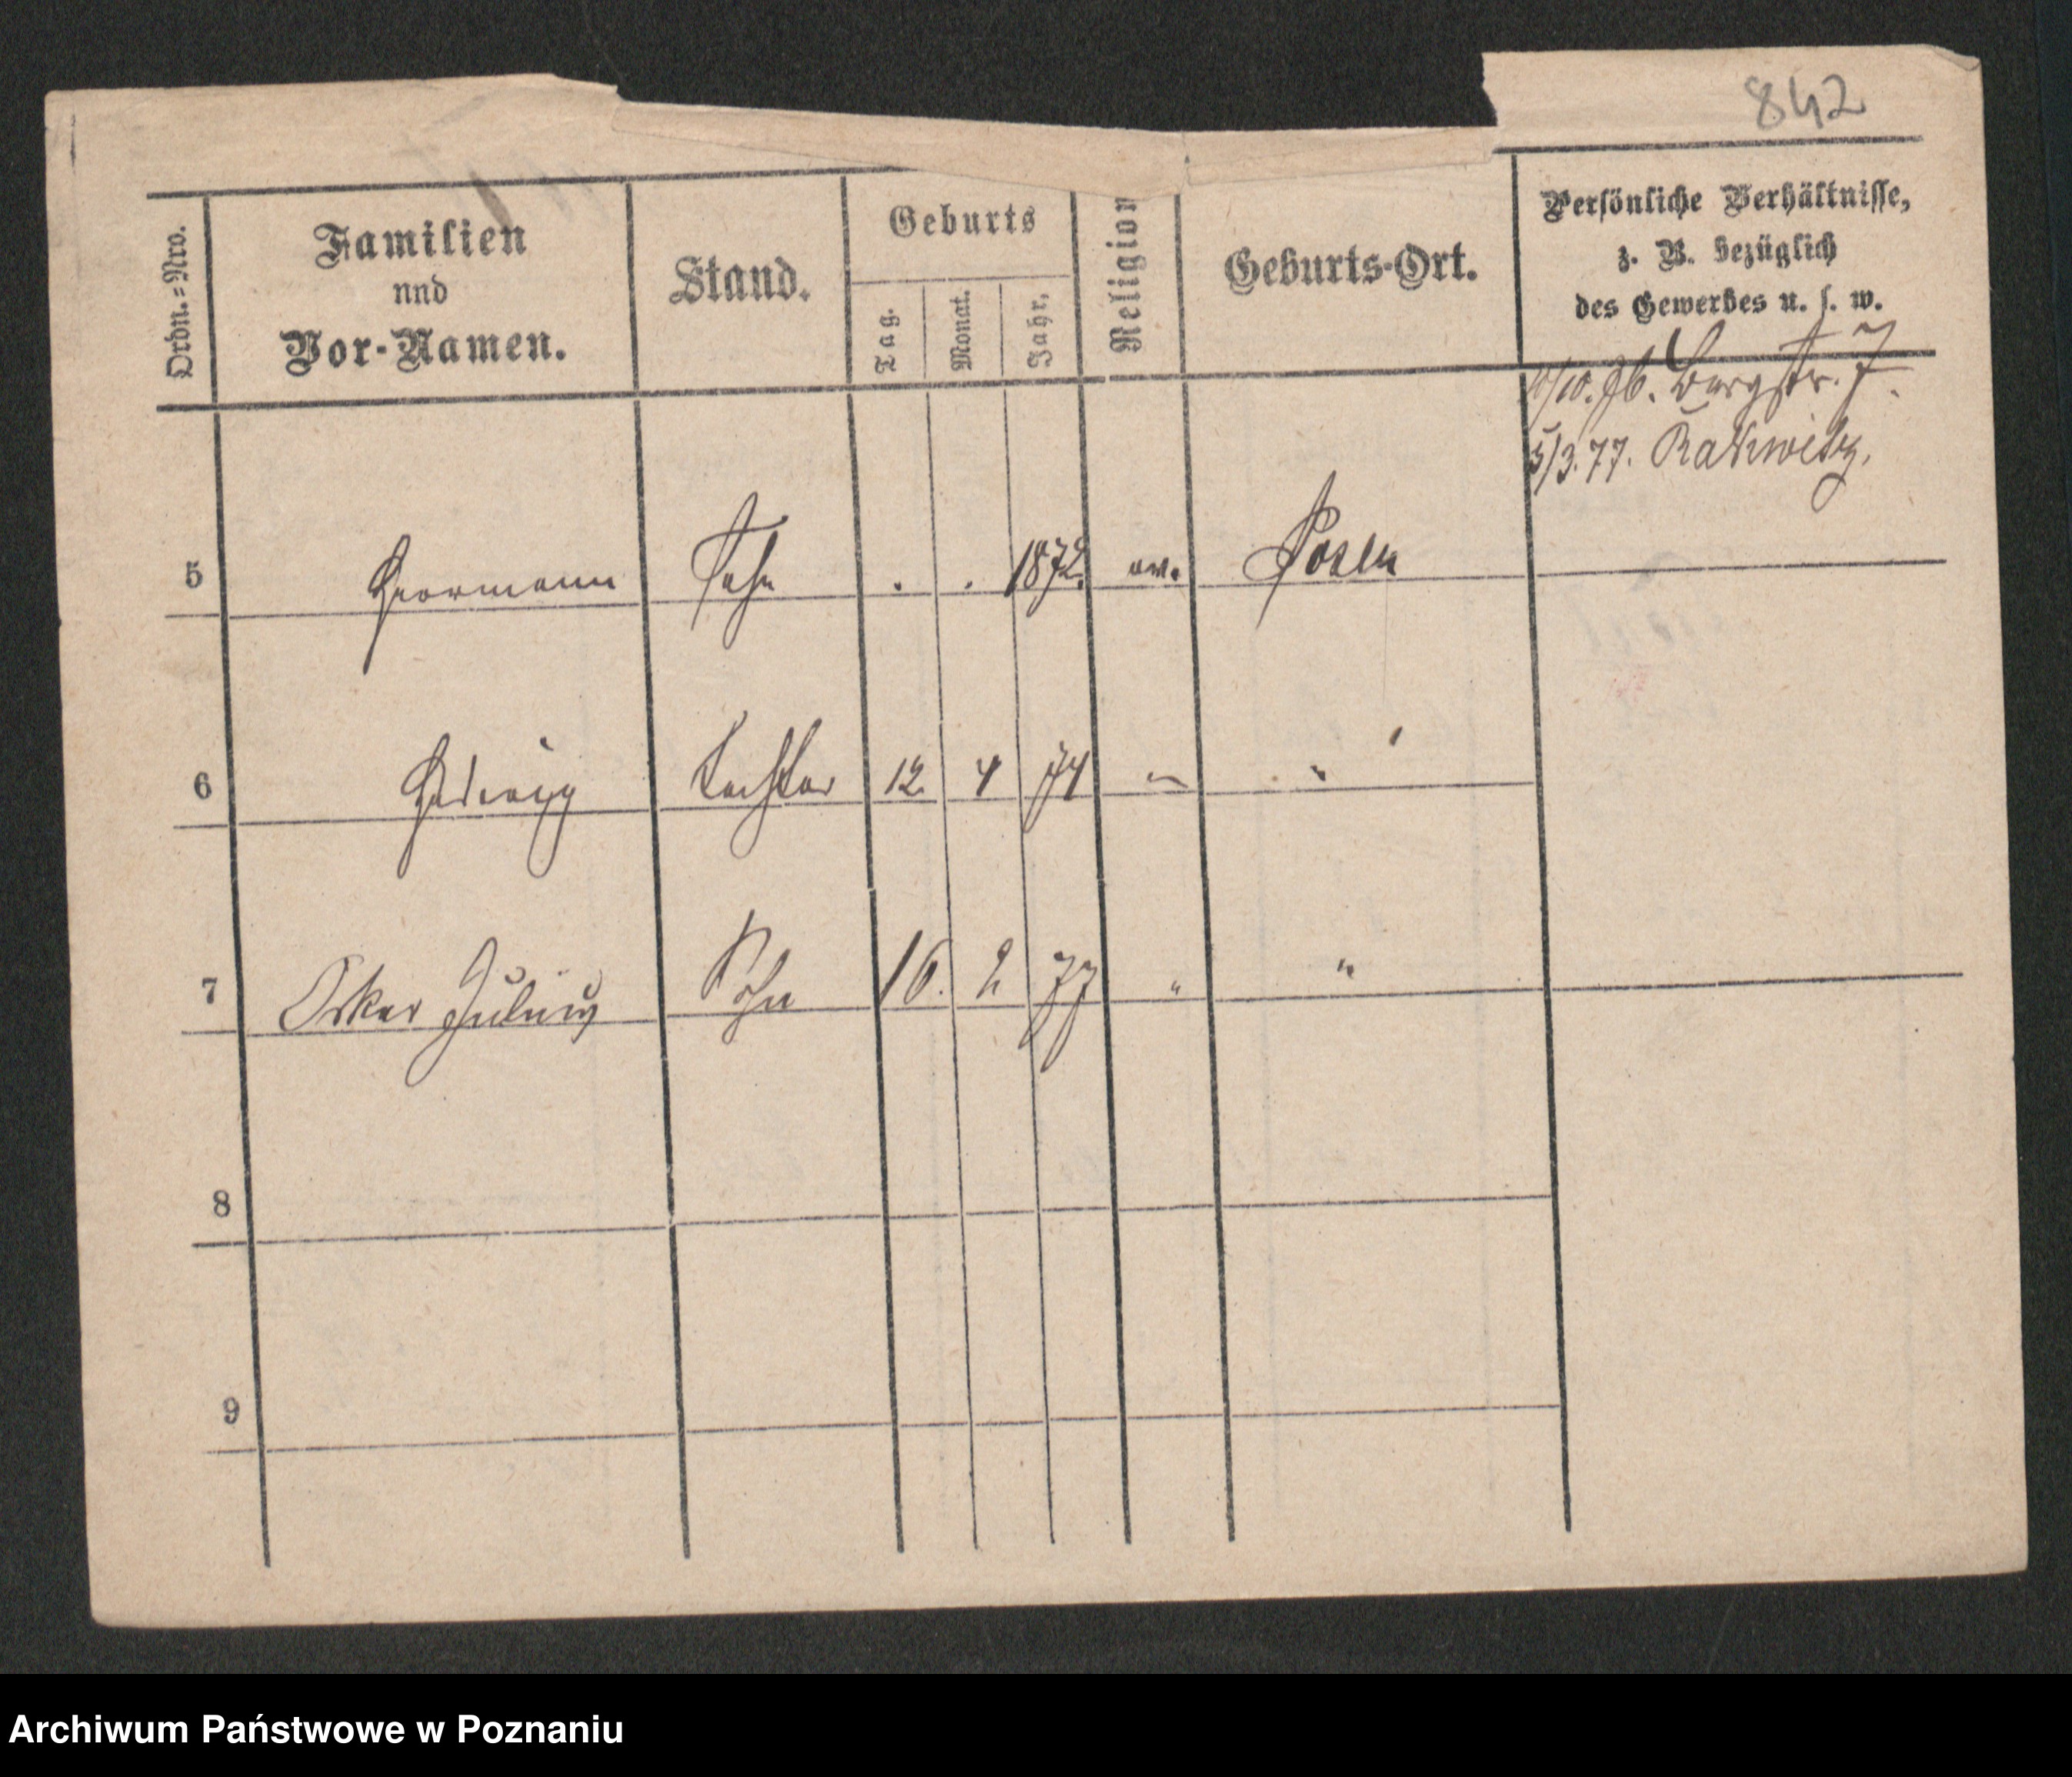 842
Ordn.=Nro.
Familien
nnd
Vor-Namen.
Stand.
Geburts
Tag.
Monat.
Jahr.
Religion
Geburts-Ort.
Persönliche Verhältnisse,
z. B. bezüglich
des Gewerbes u. s. w.
/10. 76. Bergstr. 7.
5/3. 77. Rakwitz.
5 Herrmann Sohn . . 1872. ev. Posen
6 Hedwig Tochter 12. 4 74 " "
7 Oskar Julius Sohn 16. 2 77 " "
8
9
Archiwum Państwowe w Poznaniu